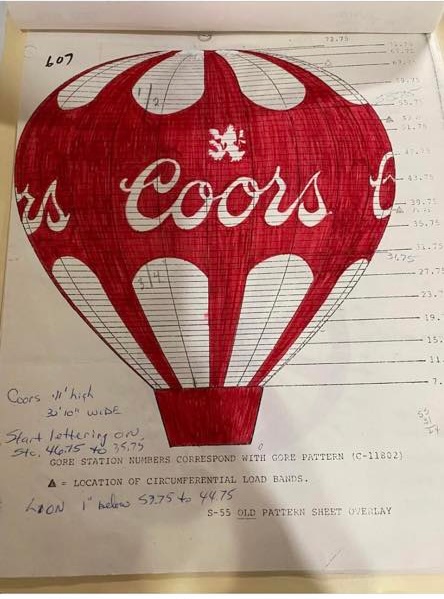 607
72.75
1/2
Coors
rs
C
43.75
39.75
35.75
31.75
3/4
27.75
23.7
19.
15.
11.
7.
Coors 11' high
32'10" WIDE
Start lettering on
Sta. 46.75 to 35.75
GORE STATION NUMBERS CORRESPOND WITH GORE PATTERN (C-11802)
▲ = LOCATION OF CIRCUMFERENTIAL LOAD BANDS.
LION 1" below 53.75 to 44.75
S-55 OLD PATTERN SHEET OVERLAY